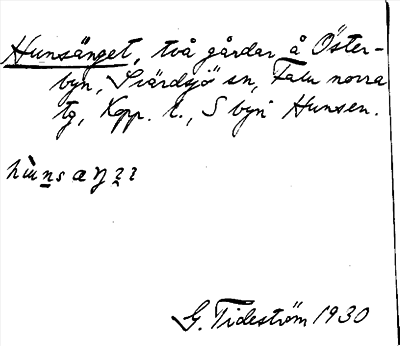 Hunsänget, två gårdar å Öster-
byn, Svärdsjö sn, Falu norra
tg, Kopp. l., S byn Hunsen.
G. Tideström 1930